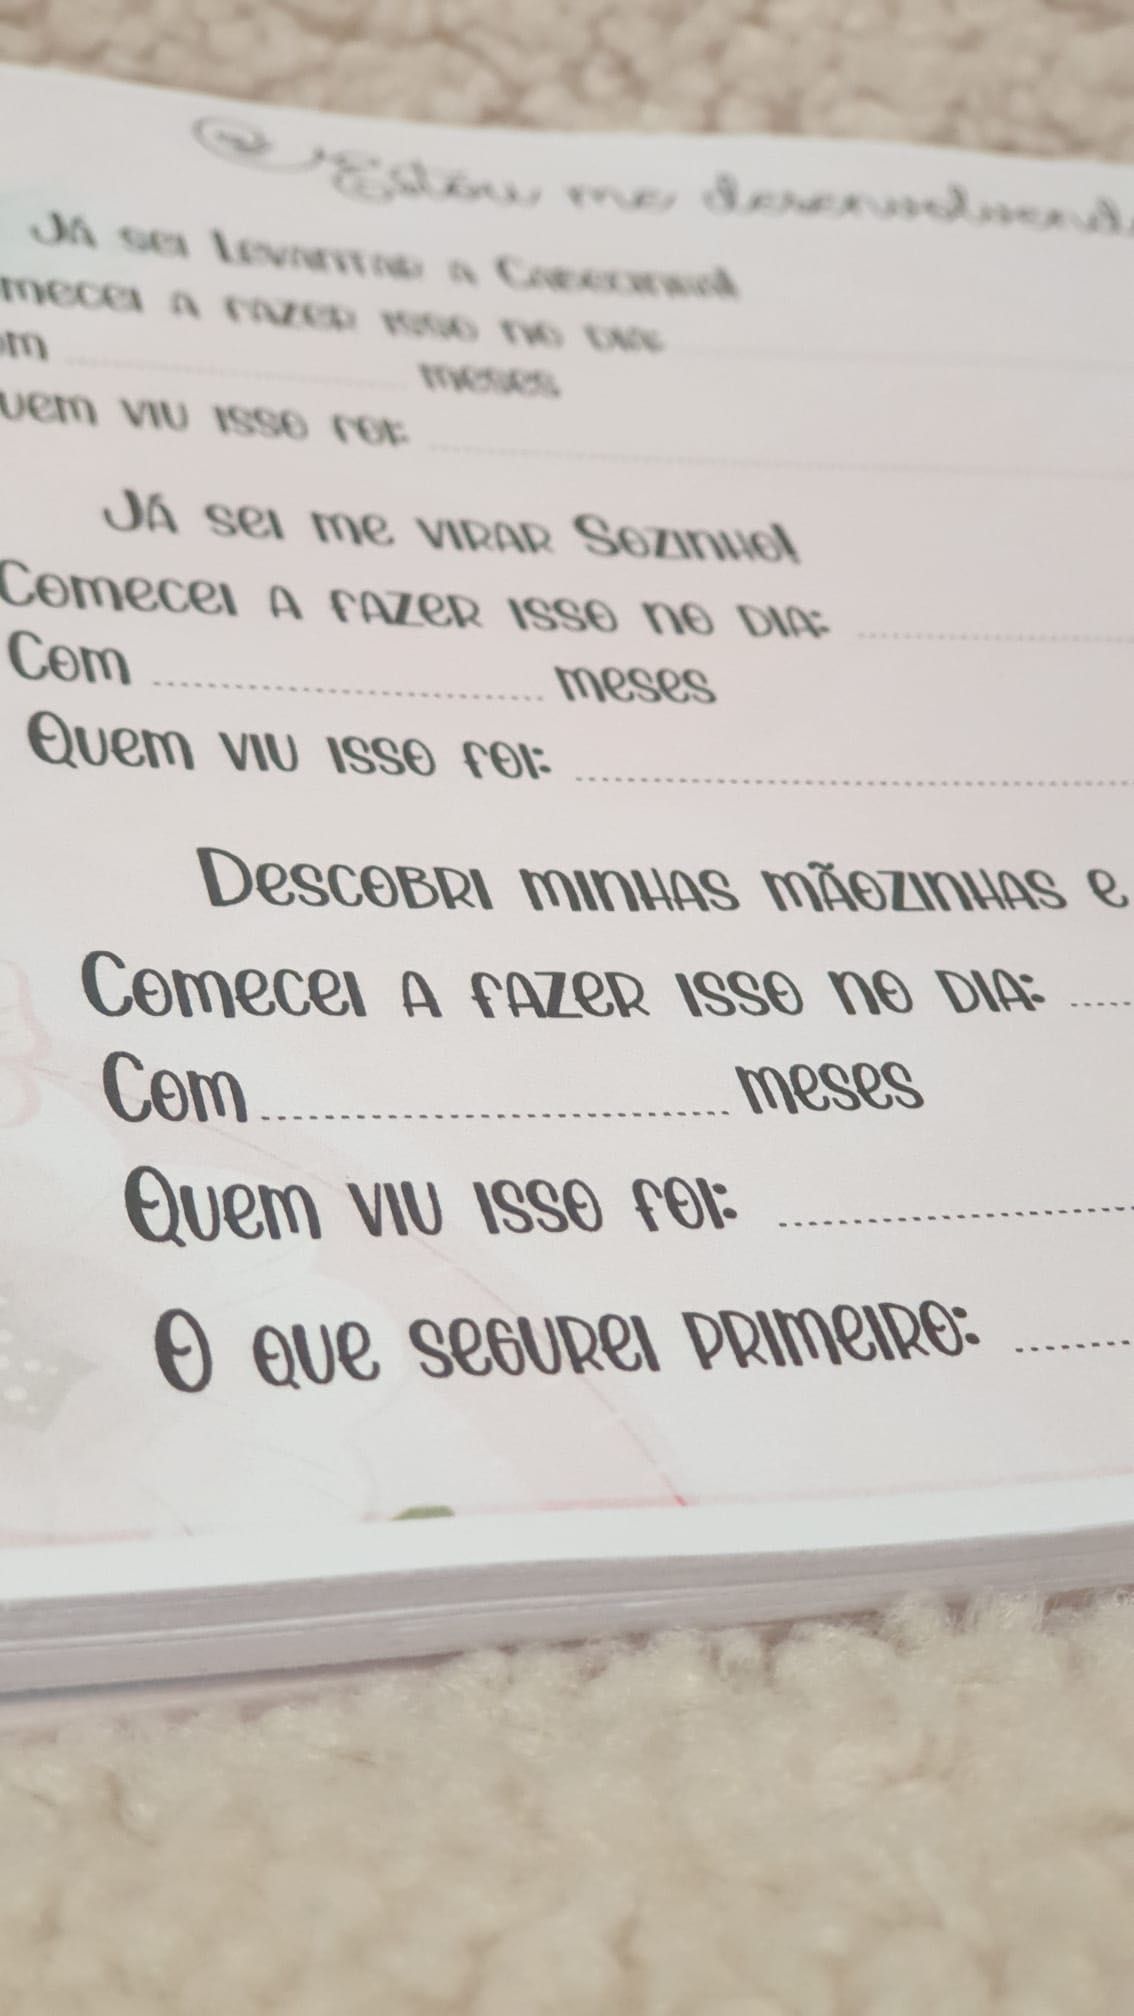 Estou me desenvolvend
Já sei Levantar a Cabecinha!
mecei a fazer isso no dia:
om ........ meses
uem viu isso foi:
Já sei me virar Sozinho!
Comecei a fazer isso no dia:
Com ........ meses
Quem viu isso foi:
Descobri minhas mãozinhas e
Comecei a fazer isso no dia:
Com ........ meses
Quem viu isso foi:
O que segurei primeiro: